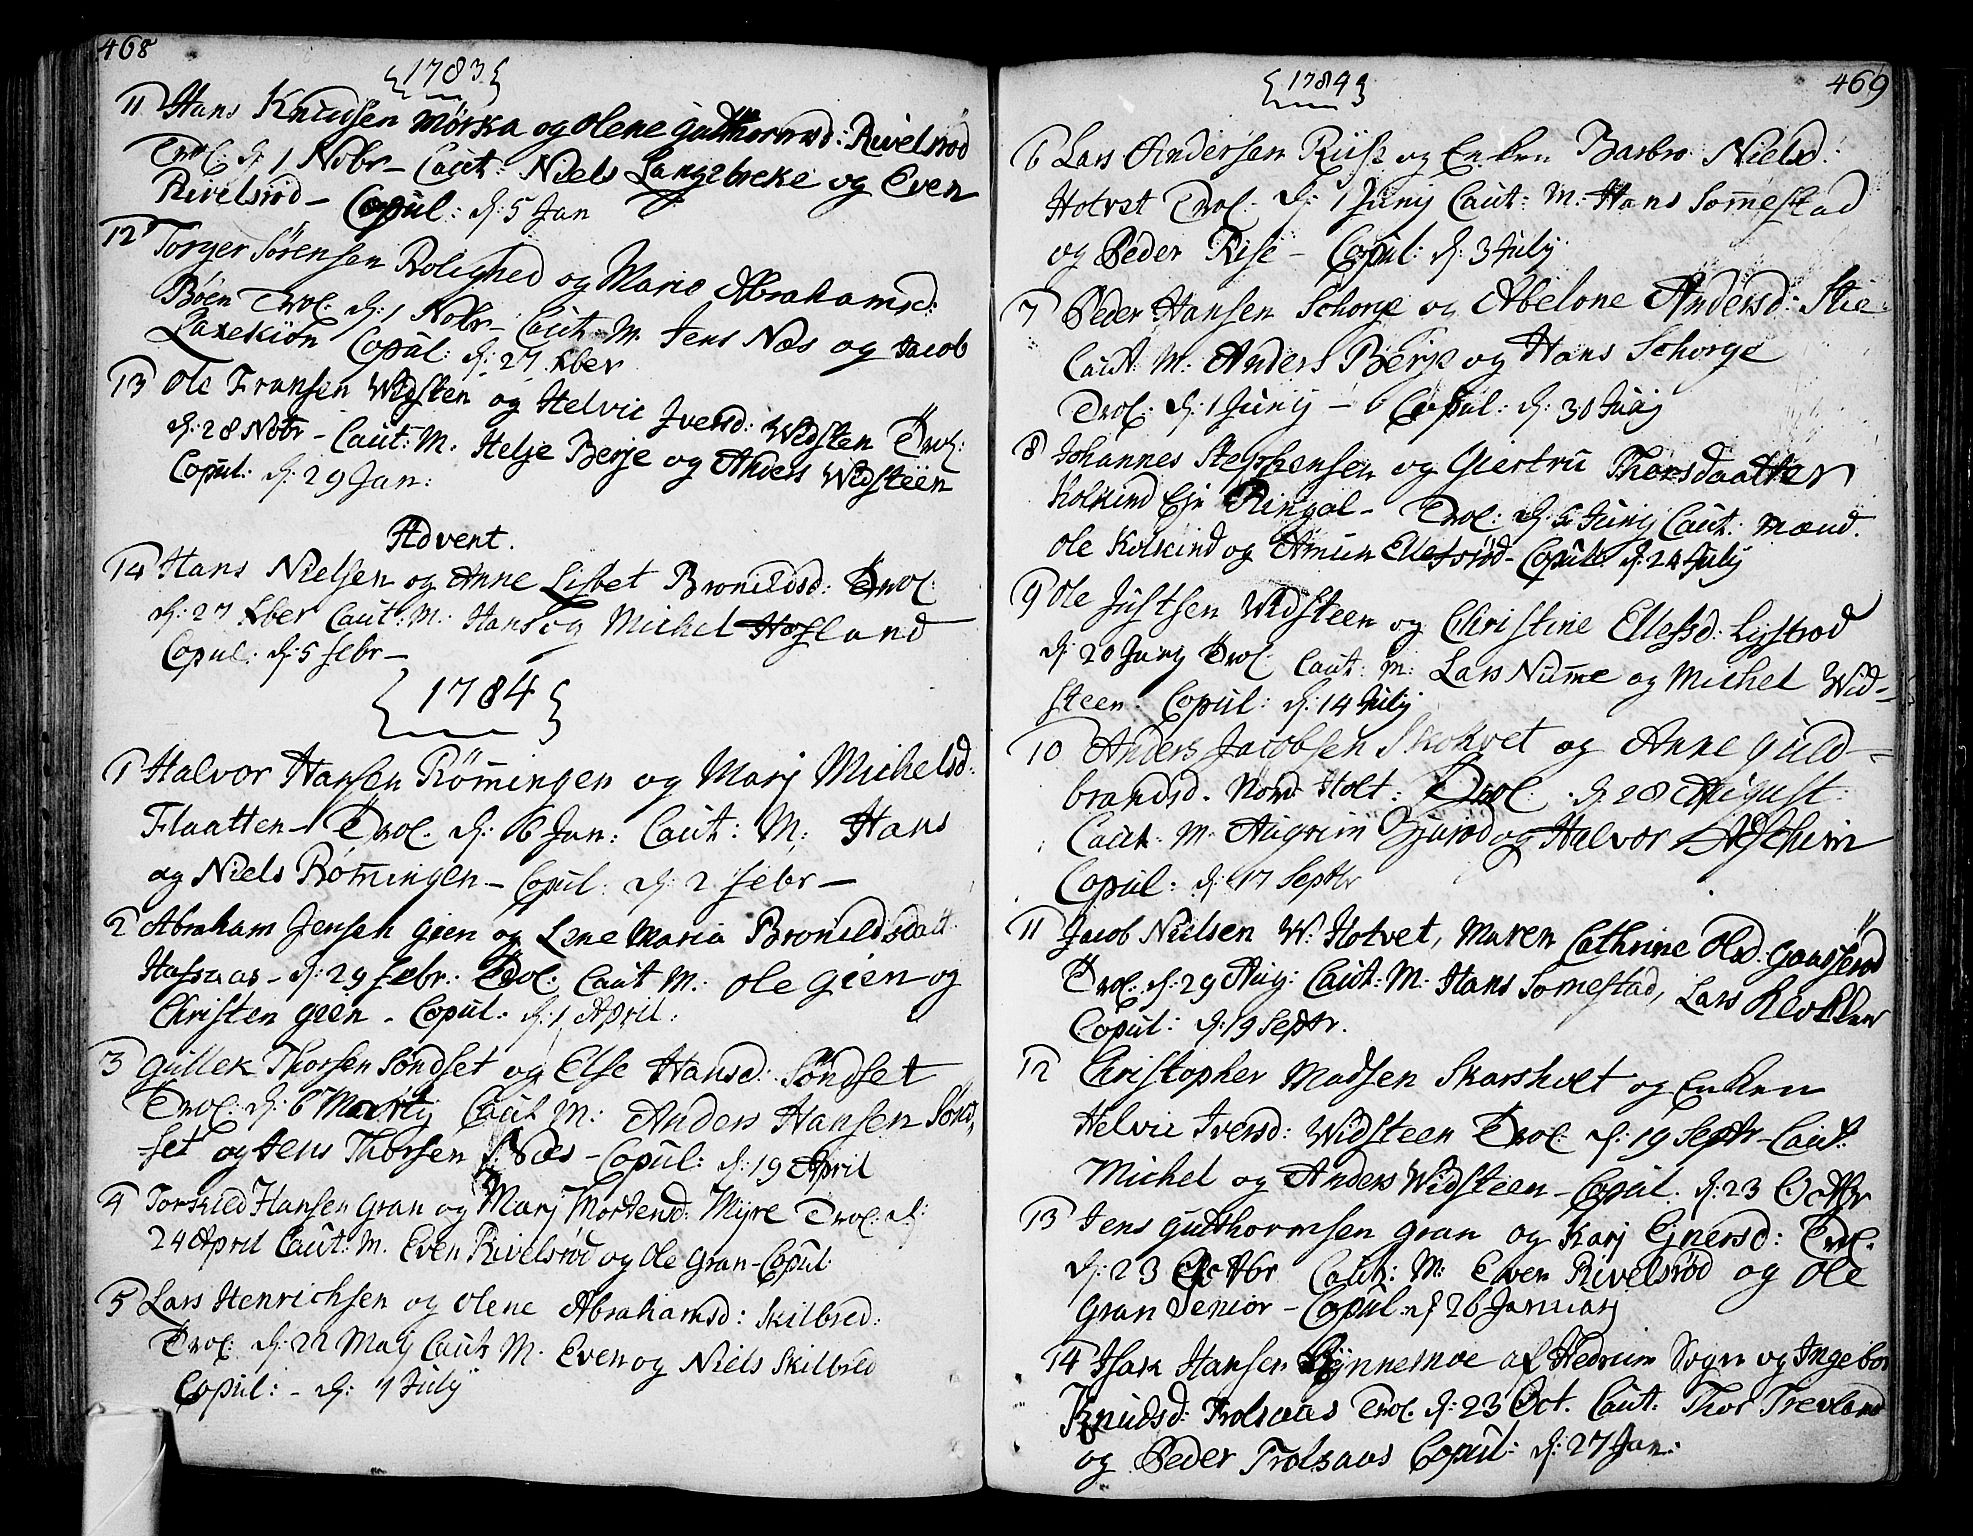 468
1783
11 Hans Knudsen Mørka og Olene Gutthormsd: Rivelsrød
Trol. d. 1 Nobr – Caut: Niels Langebreke og Even
Rivelsrød – Copul: d: 5 Jan
12 Torger Sørensen Rolighed og Marie Abrahamsd:
Böen Trol. d: 1 Nobr – Caut: M. Jens Næs og Jacob
Laxeskiön Copul: d: 27 Xber
13 Ole Fransen Widsten og Helvic Iversd: Widsten Trol:
d: 28 Nobr – Caut: M. Helje Berje og Anders Widsteen
Copul: d: 29 Jan:
Advent.
14 Hans Nielsen og Anne Lisbet Bronildsd: Trol:
d: 27 Xber Caut: M: Hans og Michel Hosland
Copul: d: 5 febr –
1784
1 Halvor Hansen Römingen og Marj Michelsd:
Flaatten – Trol. d: 6 Jan: Caut: M: Hans
og Niels Römingen – Copul: d: 2 febr –
2 Abraham Jensen Gien og Lene Maria Bronildsdatt.
Hafsaas – d: 29 febr: Trol: Caut M: Ole Gien og
Christen Gien – Copul: d: 1 April:
3 Gullek Thorsen Söndset og Else Hansd: Söndset
Trol: d: 6 Martij Caut M: Anders Hansen Sönd,
set og Jens Thorsen Næs – Copul: d: 19 April
4 Torkild Hansen Gran og Marj Mortensd: Myre Trol: d:
24 April Caut: M. Even Rivelsröd og Ole Gran – Copul
5 Lars Henrichsen og Olene Abrahamsd: Skilbred:
Trol: d: 22 Maj Caut M. Even og Niels Skilbred
Copul: – d: 1 July
469
1784
6 Lars Andersen Riis og Enken Barbro Nielsd:
Hotvet Trol: d: 1 Junij Caut: M: Hans Somestad
og Peder Rise – Copul: d: 3 July
7 Peder Hansen Schorge og Abelone Andersd: Stie
Caut: M: Anders Berje og Hans Schorge
Trol: d: 1 Junij – Copul: d: 30 July
8 Johannes Stephensen og Giertru Thorsdaatter
Kolkind Eje Ringal – Trol: d: 5 Junij Caut: Mænd.
Ole Kolkind og Amun Ellefsröd – Copul: d: 24 July
9 Ole Justsen Widsteen og Christine Ellefsd: Lystrod
d: 20 Junij Trol: Caut: M: Lars Nume og Michel Wid-
steen. Copul: d: 14 July
10 Anders Jacobsen Skokvet og Anne Guld-
brandsd. Nord Holt: Trol: d: 28 August:
Caut: M: Augrim Gjuröd og Halvor Askheim
Copul: d: 17 Septbr
11 Jacob Nielsen W. Hotvet, Maren Cathrine Olsd: Gaaseröd
Trol: d: 29 Aug: Caut: M: Hans Somestad, Lars
Copul: d: 19 Septbr.
12 Christopher Madsen Skarsholt og Enken
Helvic Iversd: Widsteen Trol: d: 19 Septbr – Caut:
Michel og Anders Widsteen – Copul. d: 23 Octbr
13 Jens Gutthormsen Gran og Karj Ejnersd: Trol.
d: 23 Octobr Caut: M: Even Rivelsröd og Ole
Gran Senior – Copul: d 26 Januarj
14 Isak Hansen Bynnesnoe af Hedrum Sogn og Ingebor
Knudsd: Trolsaas Trol: d: 23 Oct. Caut: Thor Trevland
og Peder Trolsaas Copul: d: 27 Jan: